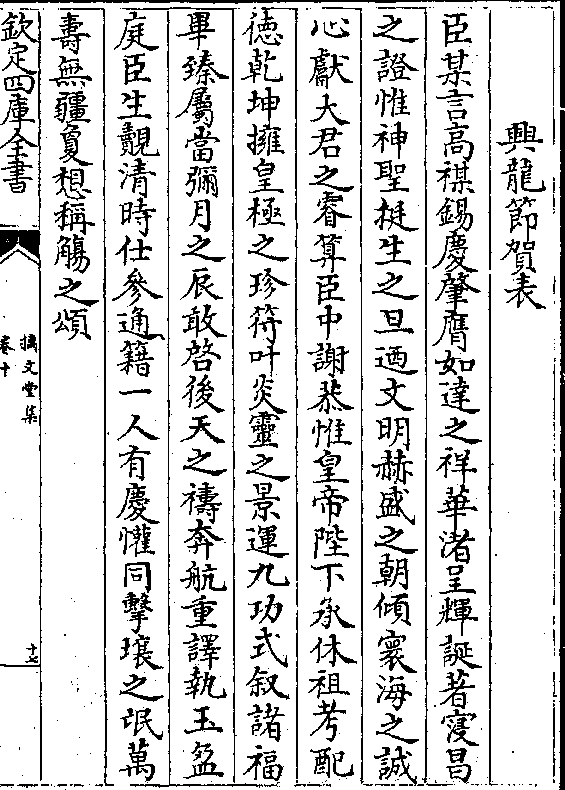 興龍節賀表
臣某言高禖錫慶肇膺如達之祥華渚呈輝誕著寖昌
之證惟神聖挺生之旦迺文明赫盛之朝傾寰海之誠
心獻大君之睿算臣中謝恭惟皇帝陛下承休祖考配
徳乾坤擁皇極之珍符叶炎靈之景運九功式叙諸福
畢臻屬當彌月之辰敢啓後天之禱奔航重譯執玉盈
庭臣生覿清時仕參通籍一人有慶懽同擊壤之氓萬
壽無疆夐想稱觴之頌
欽定四庫全書
摛文堂集
卷十
十七